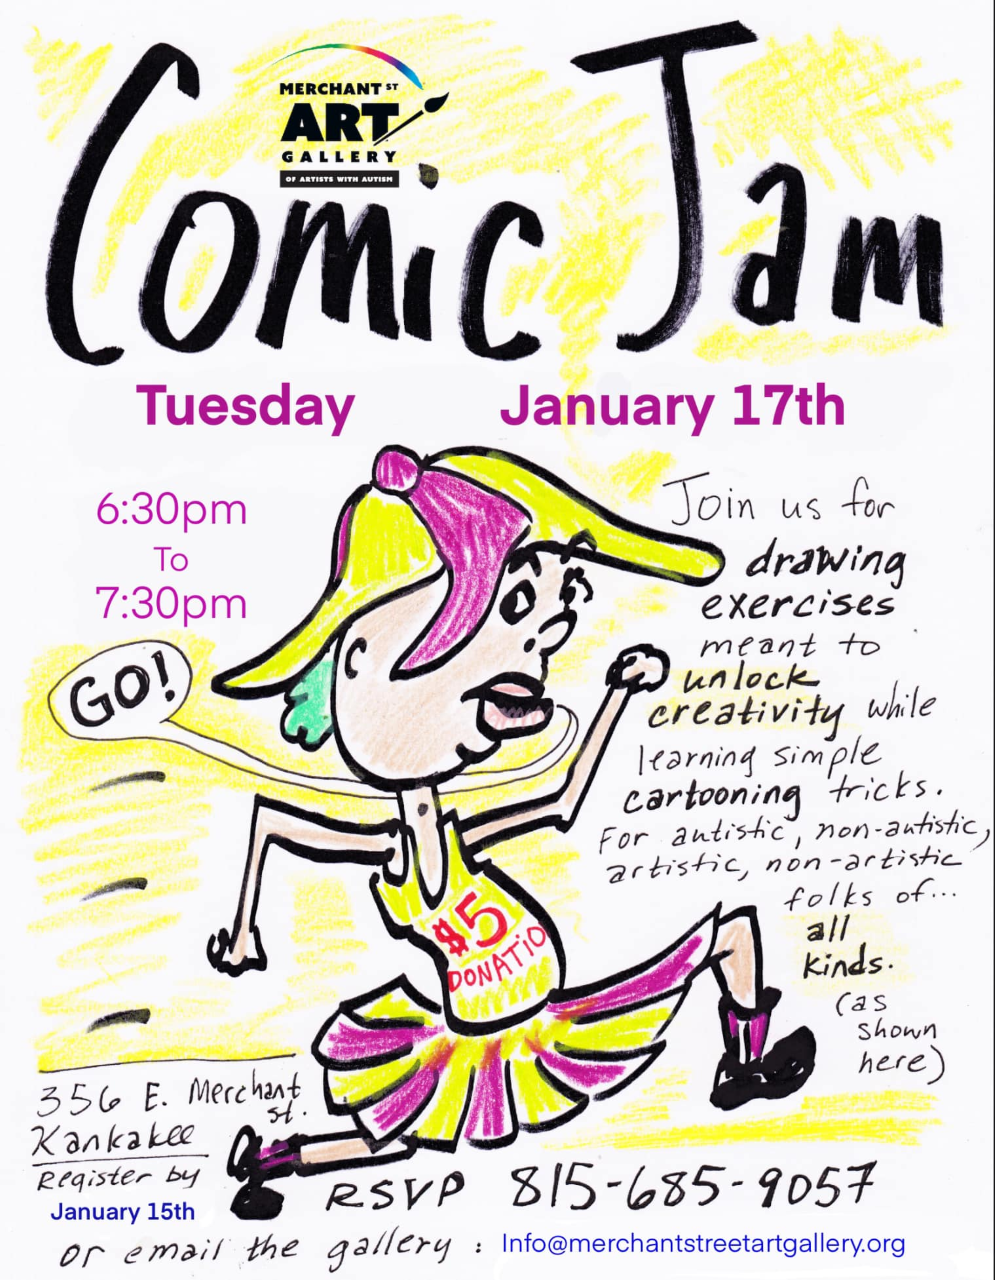 MERCHANT ST
ART
GALLERY
OF ARTISTS WITH AUTISM
Comic Jam
Tuesday January 17th
6:30pm
To
7:30pm
GO!
Join us for
drawing
exercises
meant to
unlock
creativity while
learning simple
cartooning tricks.
For autistic, non-autistic,
artistic, non-artistic
folks of...
all
kinds.
(as
shown
here)
$5
DONATIO
356 E. Merchant
st.
Kankakee
Register by
January 15th
RSVP 815-685-9057
or email the gallery : Info@merchantstreetartgallery.org